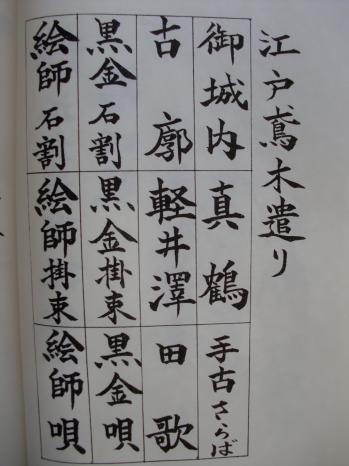 江戸鳶木遣り
御城内
真鶴
手古さらば
古廓
軽井澤
田歌
黒金 石割
黒金掛束
黒金唄
絵師 石割
絵師掛束
絵師唄